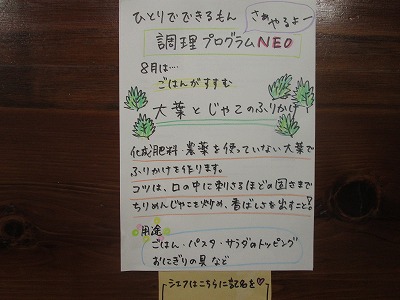 ひとりでできるもん
さぁやるよー
調理プログラムNEO
8月は‥‥
ごはんがすすむ
大葉とじゃこのふりかけ
化成肥料・農薬を使っていない大葉で
ふりかけを作ります。
コツは、口の中に刺さるほどの固さまで
ちりめんじゃこを炒め、香ばしさを出すこと!
用途
ごはん・パスタ・サラダのトッピング
おにぎりの具など
シェフはこちらに記名を♡